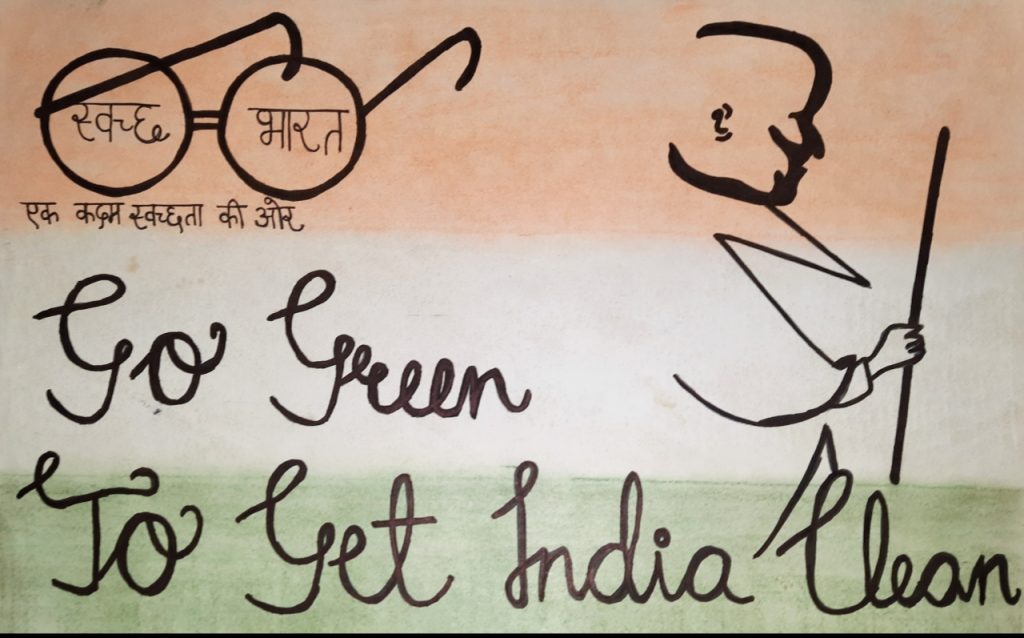 स्वच्छ भारत
एक कदम स्वच्छता की ओर
Go Green
To Get India Clean